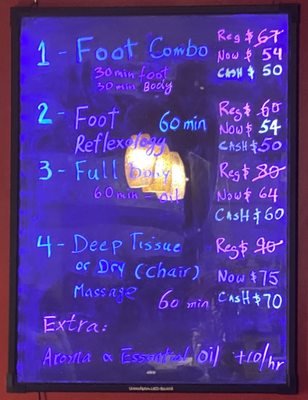 1 - Foot Combo
30 min foot
30 min Body
Reg $ 67
Now $ 54
CASH $ 50
2 - Foot Reflexology
60 min
Reg $ 60
Now $ 54
CASH $ 50
3 - Full body
60 min - oil
Reg $ 80
Now $ 64
CASH $ 60
4 - Deep Tissue
or Dry (Chair)
Massage
60 min
Reg $ 90
Now $ 75
CASH $ 70
Extra:
Aroma & Essential oil +10/hr